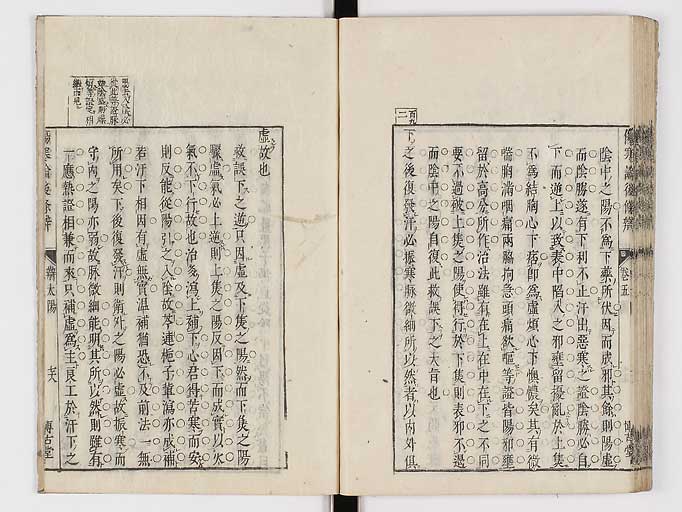 陰中之陽不爲下藥所伏因而成邪其餘則陽虛
而陰勝遂有下利不止汗出惡寒之證陰勝必自
下而逆上以致表中陷入之邪壅留擾亂於上焦
不爲結胸心下痞即爲虛煩心下懊憹矣其有微
喘胸滿咽痛兩脇拘急頭痛欲嘔等證皆陽邪壅
留於高分所作治法雖有在上在中在下之不同
要不過被上焦之陽使得行於下焦則表邪不遏
而陰中之陽自復此救誤下之大旨也
百九
二
下之後復發汗必振寒脉微細所以然者以內外俱
卷五
虛故也
救誤下之逆只因虛及下焦之陽然而下焦之陽
驟虛氣必上逆則上焦之陽反因下而成實以火
氣不下行故也治多瀉上補下心君得苦寒而安
則反能從陽引之入陰故芩連梔子輩瀉亦成補
若汗下相因有虛無實溫補猶恐不及前法一無
所用矣下後復發汗則衛外之陽必虛故振寒而
守內之陽亦弱故脉微細能明其所以然則雖有
一應熱證相兼而來只補虛爲主良工於汗下之
傷寒論後條辨
辨太陽
博古堂